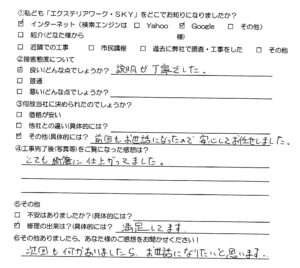 ①私ども「エクステリアワーク・SKY」をどこでお知りになりましたか?
☑ インターネット(検索エンジンは □ Yahoo ☑ Google □ その他)
□ 紹介(どなた様から 様)
□ 近隣での工事 □ 市民講座 □ 過去に弊社で調査・工事をした □ その他
②接客態度について
☑ 良い(どんな点でしょうか? 説明が丁寧でした。
□ 普通
□ 悪い(どんな点でしょうか?
③何故当社に決められたのでしょうか?
□ 価格が安い
□ 他社との違い(具体的には?
☑ その他(具体的には? 前回もお世話になったので安心してお任せしました。
④工事完了後(写真等)をご覧になった感想は?
とても綺麗に仕上がってました。
⑤その他
□ 不安はありましたか?(具体的には?
☑ 修理の出来は?(具体的には? 満足してます
⑥その他ありましたら、あなた様のご感想をお聞かせください!
次回も何かありましたら、お世話になりたいと思います。